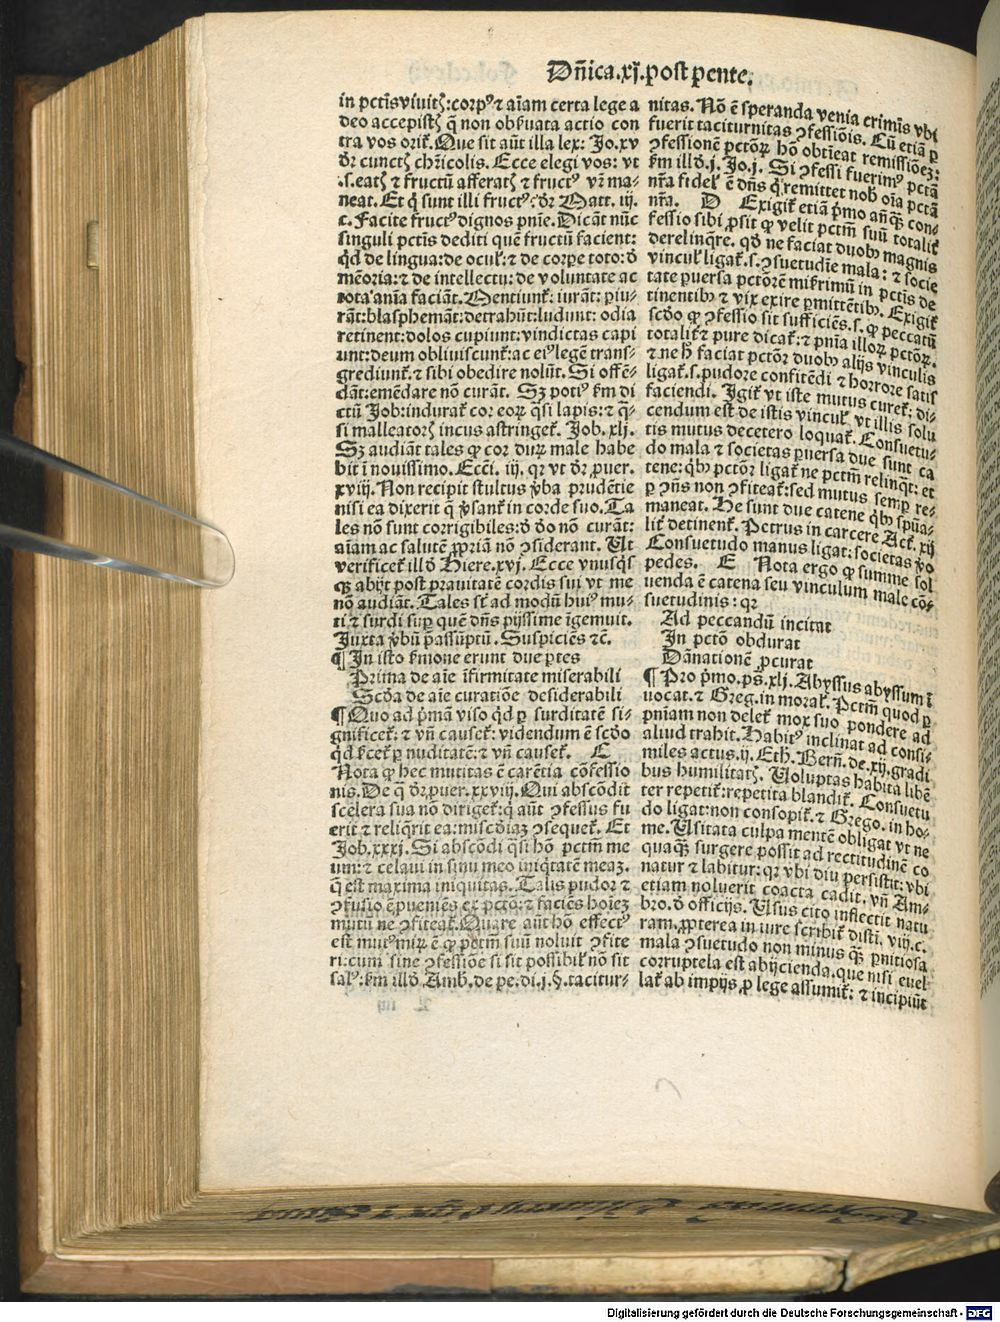 Dñica.xj.post pente.
in pctīs viuitꝭ: corpꝰ ⁊ aīam certa lege a
deo accepistꝭ q̄ non obſuata actio con
tra vos orit᷑. Que sit aūt illa lex: Jo.xv
d̄r cunctꝭ chr̄icolis. Ecce elegi vos: vt
.s. eatꝭ ⁊ fructū afferatꝭ ⁊ fructꝰ vr̄ ma-
neat. Et q̄ sunt illi fructꝰ: d̄r Matt. iij.
c. Facite fructꝰ dignos pnīe. Dicāt nūc
singuli pctīs dediti quē fructū facient:
qd̓ de lingua: de oculꝭ: ⁊ de corpe toto: d̓
mēoria: ⁊ de intellectu: de voluntate ac
tota anīa faciāt. Mentiunt᷑: iurāt: piu-
rāt: blasphemāt: detrahūt: ludunt: odia
retinent: dolos cupiunt: vindictas capi
unt: deum obliuiscunt᷑: ac eiꝰ legē trans-
grediunt᷑. ⁊ sibi obedire nolūt. Si offē-
dāt: emēdare nō curāt. Sꝫ potiꝰ ẜm di
ctū Job: indurat᷑ cor eoꝝ q̄si lapis: ⁊ q̄-
si malleatorꝭ incus astringet᷑. Job. xlj.
Sꝫ audiāt tales ꝙ cor duꝝ male habe
bit ī nouissimo. Ecci. iij. qr vt d̄r ꝓuer.
xviij. Non recipit stultus v̓ba prudētie
nisi ea dixerit q̄ v̓sant᷑ in corde suo. Ta
les nō sunt corrigibiles: d̓ d̓o nō curāt:
aīam ac salutē ꝓpriā nō ꝯsiderant. Ut
verificet᷑ illd̓ Hiere.xvj. Ecce vnusqꝭ
qꝫ abijt post prauitatē cordis sui vt me
nō audiāt. Tales st̄ ad modū huiꝰ mu-
ti ⁊ surdi suꝑ quē dn̄s pijssime īgemuit.
Juxta v̓bū p̄assūptū. Suspiciēs ⁊c̄.
¶ In isto ẜmone erunt due ꝑtes
Prima de aīe īfirmitate miserabili
Scd̓a de aīe curatiōe desiderabili
¶ Quo ad p̄mā viso qd̓ ꝑ surditatē si-
gnificet᷑: ⁊ vn̄ causet᷑: videndum ē scd̓o
qd̓ ẜcet᷑ ꝑ nuditatē: ⁊ vn̄ causet᷑. C
Nota ꝙ hec mutitas ē carētia cōfessio
nis. De q̄ d̄r ꝓuer.xxviij. Qui abscōdit
scelera sua nō dirigeť: q̇ aūt ꝯfessus fu
erit ⁊ reliq̄rit ea: miscd̓iaꝫ ꝯsequet᷑. Et
Job.xxxj. Si abscōdi q̄si hō pctm̄ me
um: ⁊ celaui in sinu meo iniq̄tatē meaꝫ.
q̄ est maxima iniquitas. Talis pudor ⁊
ꝯfusio ē ꝓueniēs ex pctō: ⁊ faciēs hoieꝫ
mutū ne ꝯfiteat᷑. Quare aūt hō effectꝰ
est mutꝰ miꝝ ē ꝙ pctm̄ suū noluit ꝯfite
ri: cum sine ꝯfessiōe si sit possibilꝭ nō sit
salꝰ: ẜm illd̓ Amb. de pe. di.j.§. tacitur-
nitas. Nō ē speranda venia crimīs vbi
fuerit taciturnitas ꝯfessiōis. Cū etiā ꝑ
ꝯfessionē pctōꝝ hō obtīeat remissiōeꝫ:
ẜm illd̓.j. Jo.j. Si ꝯfessi fuerimꝰ pctā
nr̄a fidelꝭ ē dn̄s q̇ remittet nob̓ oīa pctā
nr̄a. D Exigit᷑ etiā p̄mo an̄qꝫ con-
fessio sibi ꝓsit ꝙ velit pctm̄ suū totalit᷑
derelinq̄re. qd̓ ne faciat duobꝫ magnis
vinculꝭ ligat᷑. s. ꝯsuetudīe mala: ⁊ socie
tate ꝑuersa pctōrē mẜrimū in pctīs de
tinentibꝫ ⁊ vix exire ꝑmittētibꝫ. Exigit᷑
scd̓o ꝙ ꝯfessio sit sufficiēs. s. ꝙ peccatū
totalit᷑ ⁊ pure dicat᷑: ⁊ pn̄ia illoꝝ pctōꝝ.
⁊ ne h̓ faciat pctōr duobꝫ alijs vinculis
ligat᷑. s. pudore confitēdi ⁊ horrore satis
faciendi. Igit᷑ vt iste mutus curet᷑: di-
cendum est de istis vinculꝭ vt illis solu
tis mutus decetero loquat᷑. Consuetu-
do mala ⁊ societas ꝑuersa due sunt ca
tene: qͥbꝫ pctōr ligat᷑ ne pctm̄ relinqͣt: et
ꝑ ꝯn̄s non ꝯfiteat᷑: sed mutus semꝑ re-
maneat. He sunt due catene qͥbꝫ spūa-
lit᷑ detinent᷑. Petrus in carcere Act. xij
Consuetudo manus ligat: societas v̓o
pedes. E Nota ergo ꝙ summe sol
uenda ē catena seu vinculum male cō-
suetudinis: qꝛ
Ad peccandū incitat
In pctō obdurat
Dānationē ꝓcurat
¶ Pro p̄mo.ps̄.xlj. Abyssus abyssum ī
uocat. ⁊ Greg. in moral. Pctm̄ quod ꝑ
pn̄iam non delet᷑ mox suo pondere ad
aliud trahit. Habitꝰ inclinat ad consi-
miles actus. ij. Eth. Bern̄. de. xij. gradi
bus humilitatꝭ. Uoluptas habita libē
ter repetit᷑: repetita blandit᷑. Consuetu
do ligat: non consopit᷑. ⁊ Grego. in ho-
me. Usitata culpa mentē obligat vt ne
quaqꝫ surgere possit ad rectitudinē co
natur ⁊ labitur: qꝛ vbi diu persistit: vbi
etiam noluerit coacta cadit. vn̄ Am-
bro. d̓ officijs. Usus cito inflectit natu
ram. ꝓpterea in iure scribit᷑ disti. viij. c.
mala ꝯsuetudo non minus qꝫ ꝑnitiosa
corruptela est abijcienda. que nisi euel
lat᷑ ab impijs ꝓ lege assumit᷑: ⁊ incipiūt
Digitalisierung gefördert durch die Deutsche Forschungsgemeinschaft - DFG